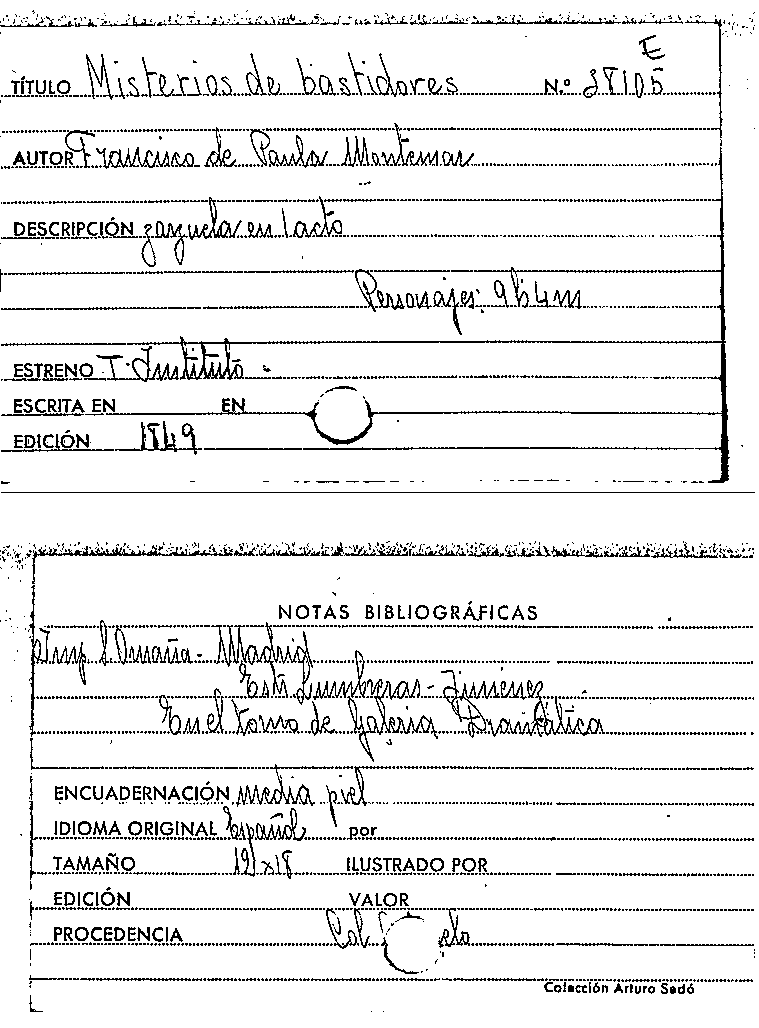 E
TÍTULO Misterios de bastidores N.º 38105
AUTOR Francisco de Paula Montemar
DESCRIPCIÓN zarzuela en 1 acto
Personajes: 9h4m
ESTRENO T. Instituto.
ESCRITA EN EN
EDICIÓN 1849
NOTAS BIBLIOGRÁFICAS
Imp S. Omaña - Madrid
Est. Lumbreras - Jiménez
En el tomo de Galeria Dramática
ENCUADERNACIÓN media piel
IDIOMA ORIGINAL Español por
TAMAÑO 12x18 ILUSTRADO POR
EDICIÓN VALOR
PROCEDENCIA Col
Colección Arturo Sedó